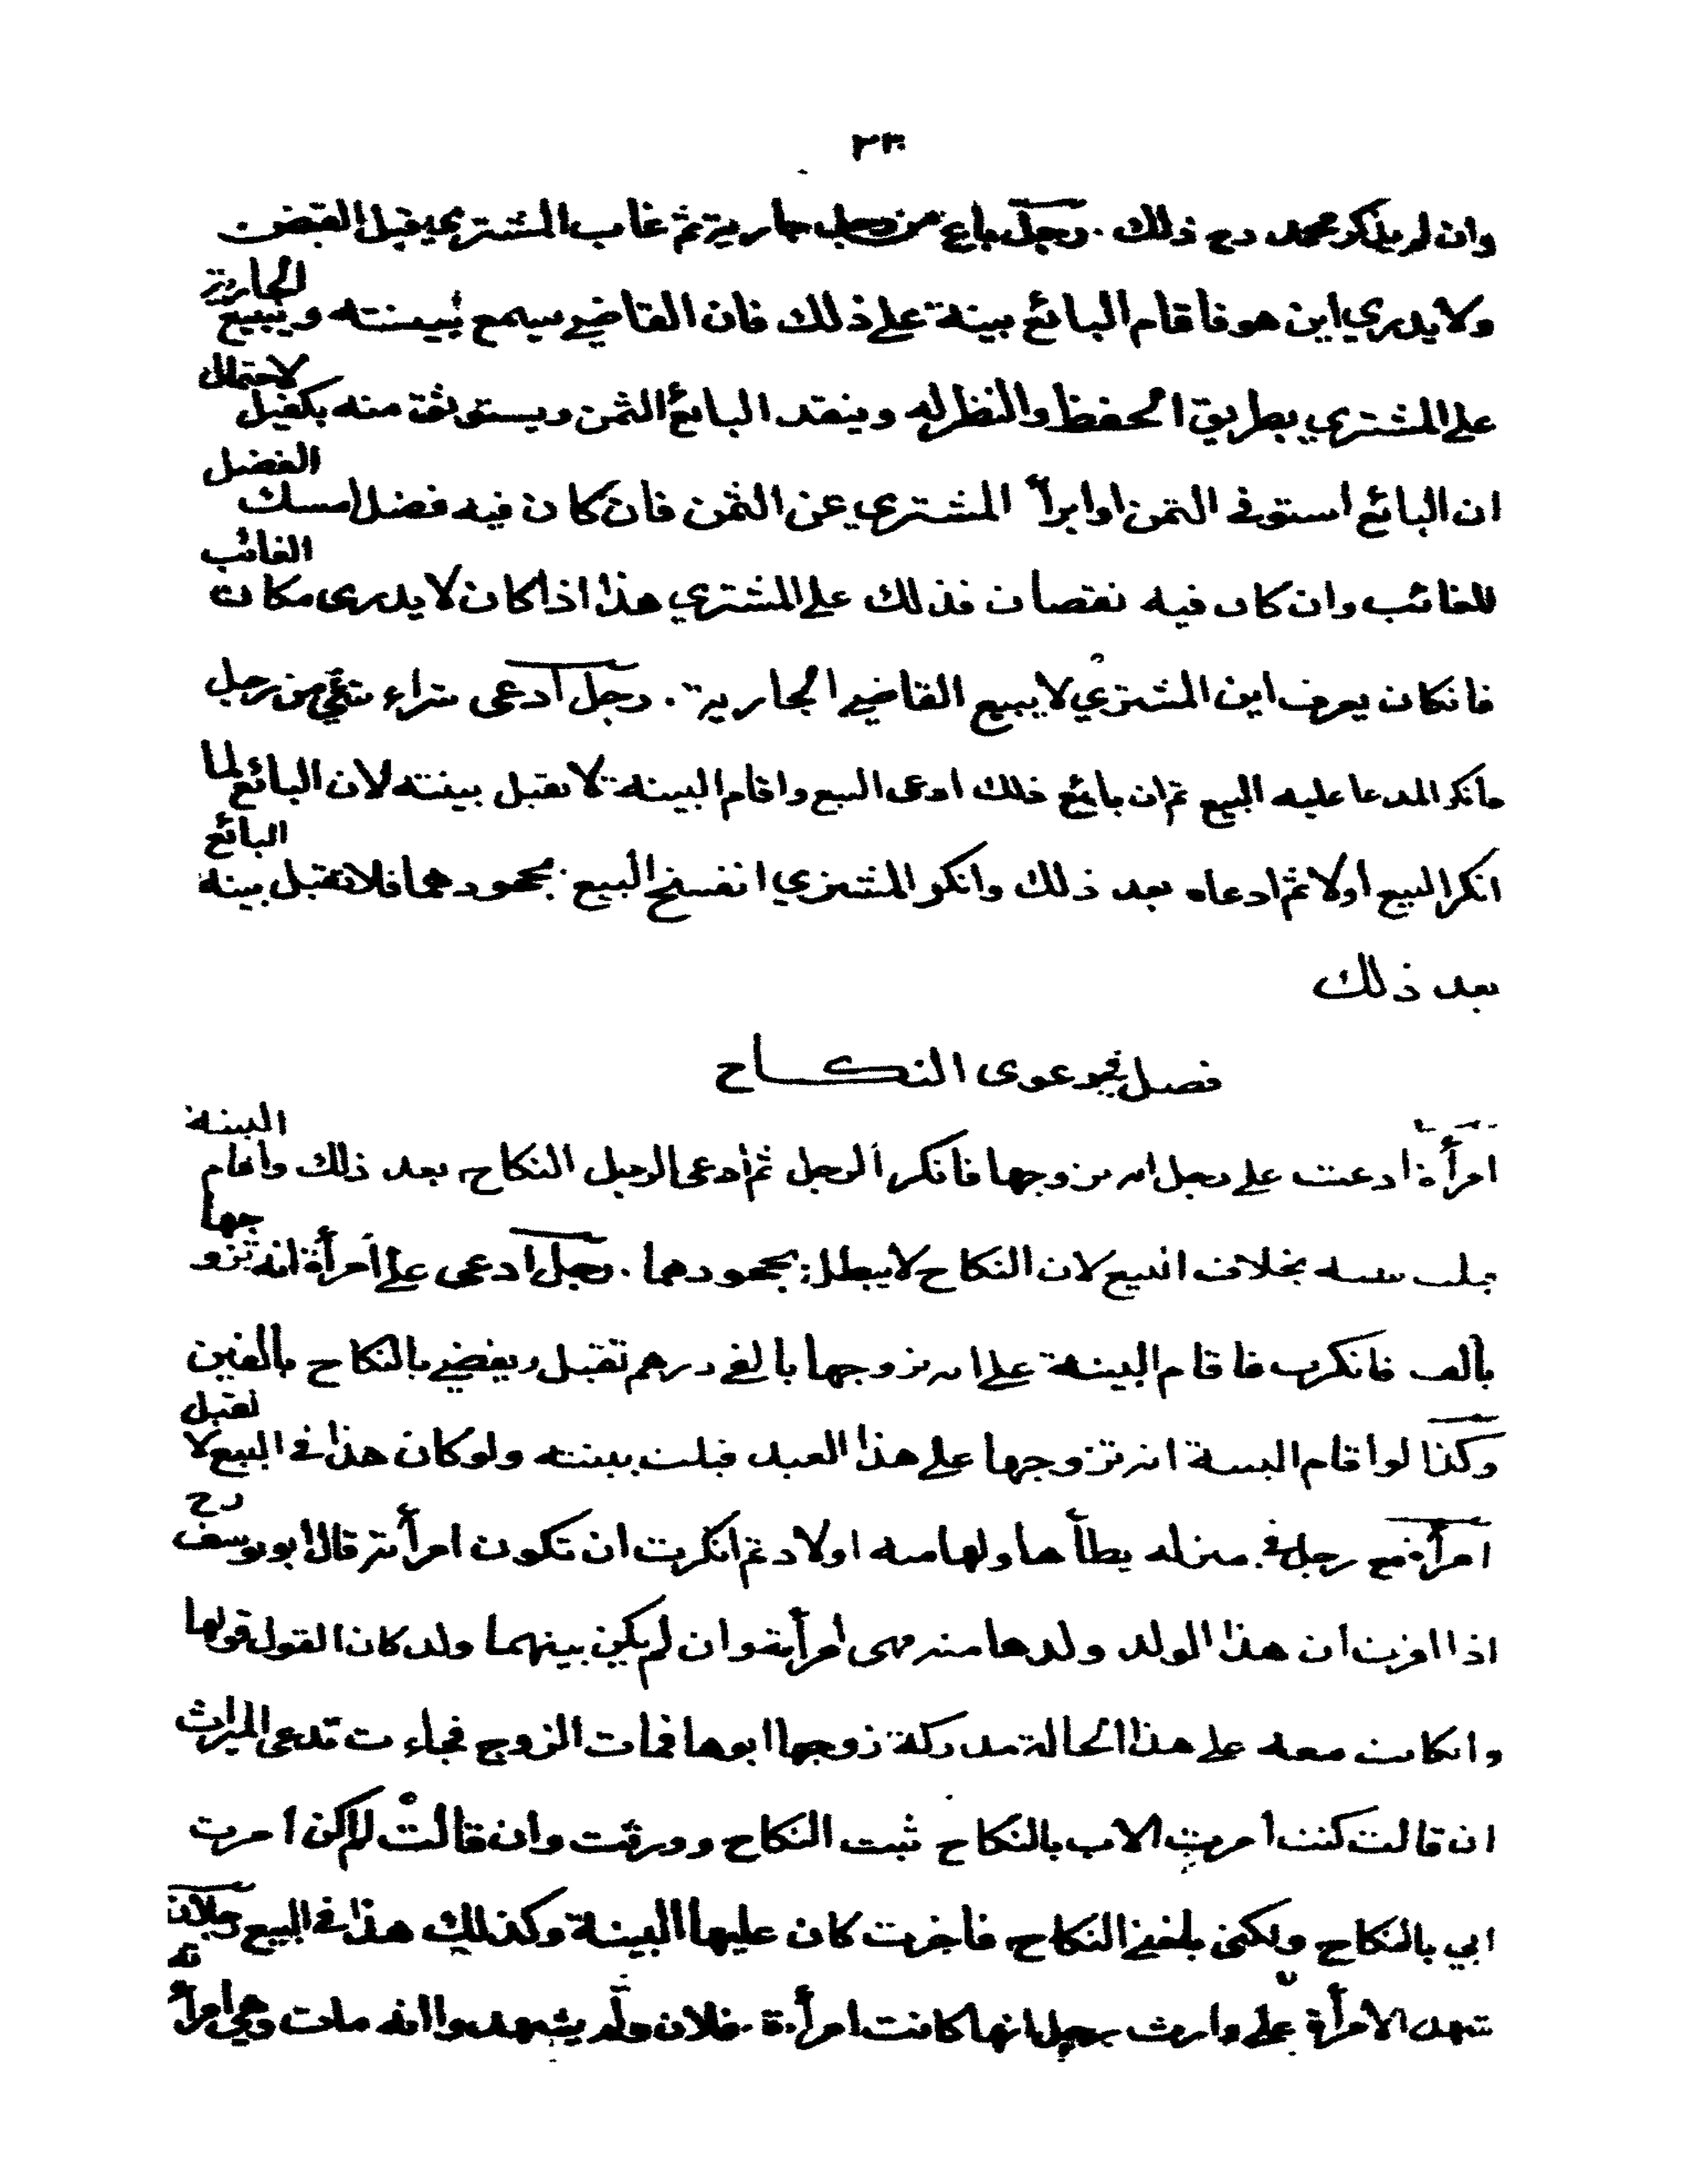 ٢٣٠
وان لم يذكر محمد رح ذلك . رجل باع من رجل جارية ثم غاب المشتري قبل القبض
ولا يدري اين هو فاقام البائع بينة على ذلك فان القاضي سيمع بينته ويبيع الجارية
على المشتري بطريق الحفظ والنظر له وينقد البائع الثمن ويستوثق منه بكفيل لاحتمال
ان البائع استوفى الثمن او ابرأ المشتري عن الثمن فان كان فيه فضل امسك الفضل
للغائب وان كان فيه نقصان فذلك على المشتري هذا اذا كان لا يدرى مكان الغائب
فانكان يعرف اين المشتري لا يبيع القاضي الجارية . رجل ادعى شراء شئ من رجل
فانكر المدعا عليه البيع ثم ان بائع ذلك ادعى البيع واقام البينة لا تقبل بينته لان البائع لما
انكر البيع اولا ثم ادعاه بعد ذلك وانكر المشتري انفسخ البيع بجحودهما فلا تقبل بينه البائع
بعد ذلك
فصل في دعوى النكاح
امرأة ادعت على رجل انه تزوجها فانكر الرجل ثم ادعى الرجل النكاح بعد ذلك واقام البينة
قبلت بينته بخلاف البيع لان النكاح لا يبطل بجحودهما . رجل ادعى على امرأة انه تزوجها
بالف فانكرت فاقام البينة على انه تزوجها بالفي درهم تقبل ويقضي بالنكاح بالفين
وكذا لو اقام البينة انه تزوجها على هذا العبد قبلت بينته ولو كان هذا في البيع لا تقبل
امرأة مع رجل في منزله يطأها ولها منه اولاد ثم انكرت ان تكون امرأته قال ابو يوسف رح
اذا اقرت ان هذا الولد ولدها منه فهى امرأته وان لم يكن بينهما ولد كان القول قولها
وانكانت معه على هذا الحالة مدركة زوجها ابوها فمات الزوج فجاءت تدعى الميراث
ان قالت كنت امرت الاب بالنكاح ثبت النكاح وورثت وان قالت لم اكن امرت
ابي بالنكاح ولكن بلغني النكاح فاجزت كان عليها البينة وكذلك هذا في البيع رجلان
شهد الامرأة على وارث رجل انها كانت امرأة فلان ولم يشهدوا انه مات وهي امرأته